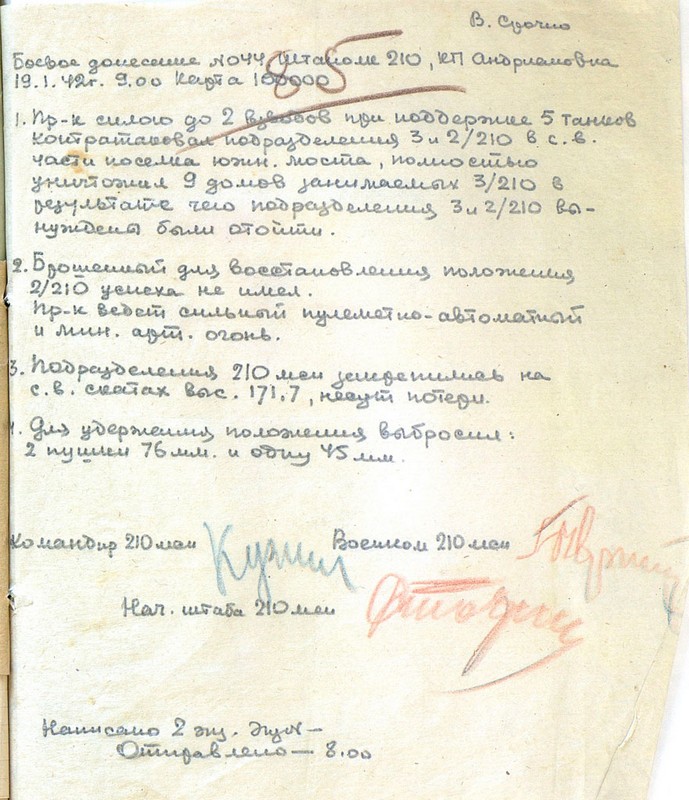 В. Срочно
85
Боевое донесение №044, штаполк 210, КП Андриановка
19.1.42г. 9.00 Карта 100000
1. Пр-к силою до 2 взводов при поддержке 5 танков
контратаковал подразделения 3 и 2/210 в с.в.
части поселка южн. моста, полностью
уничтожил 9 домов занимаемых 3/210 в
результате чего подразделения 3 и 2/210 вы-
нуждены были отойти.
2. Брошенный для восстановления положения
2/210 успеха не имел.
Пр-к ведет сильный пулеметно-автоматный
и мин. арт. огонь.
3. Подразделения 210 мсп закрепились на
с.в. скатах выс. 171,7, несут потери.
4. Для удержания положения выбросил:
2 пушки 76 мм. и одну 45 мм.
Командир 210 мсп Военком 210 мсп
Нач. штаба 210 мсп
Написано 2 экз. Экз №
Отправлено — 8.00